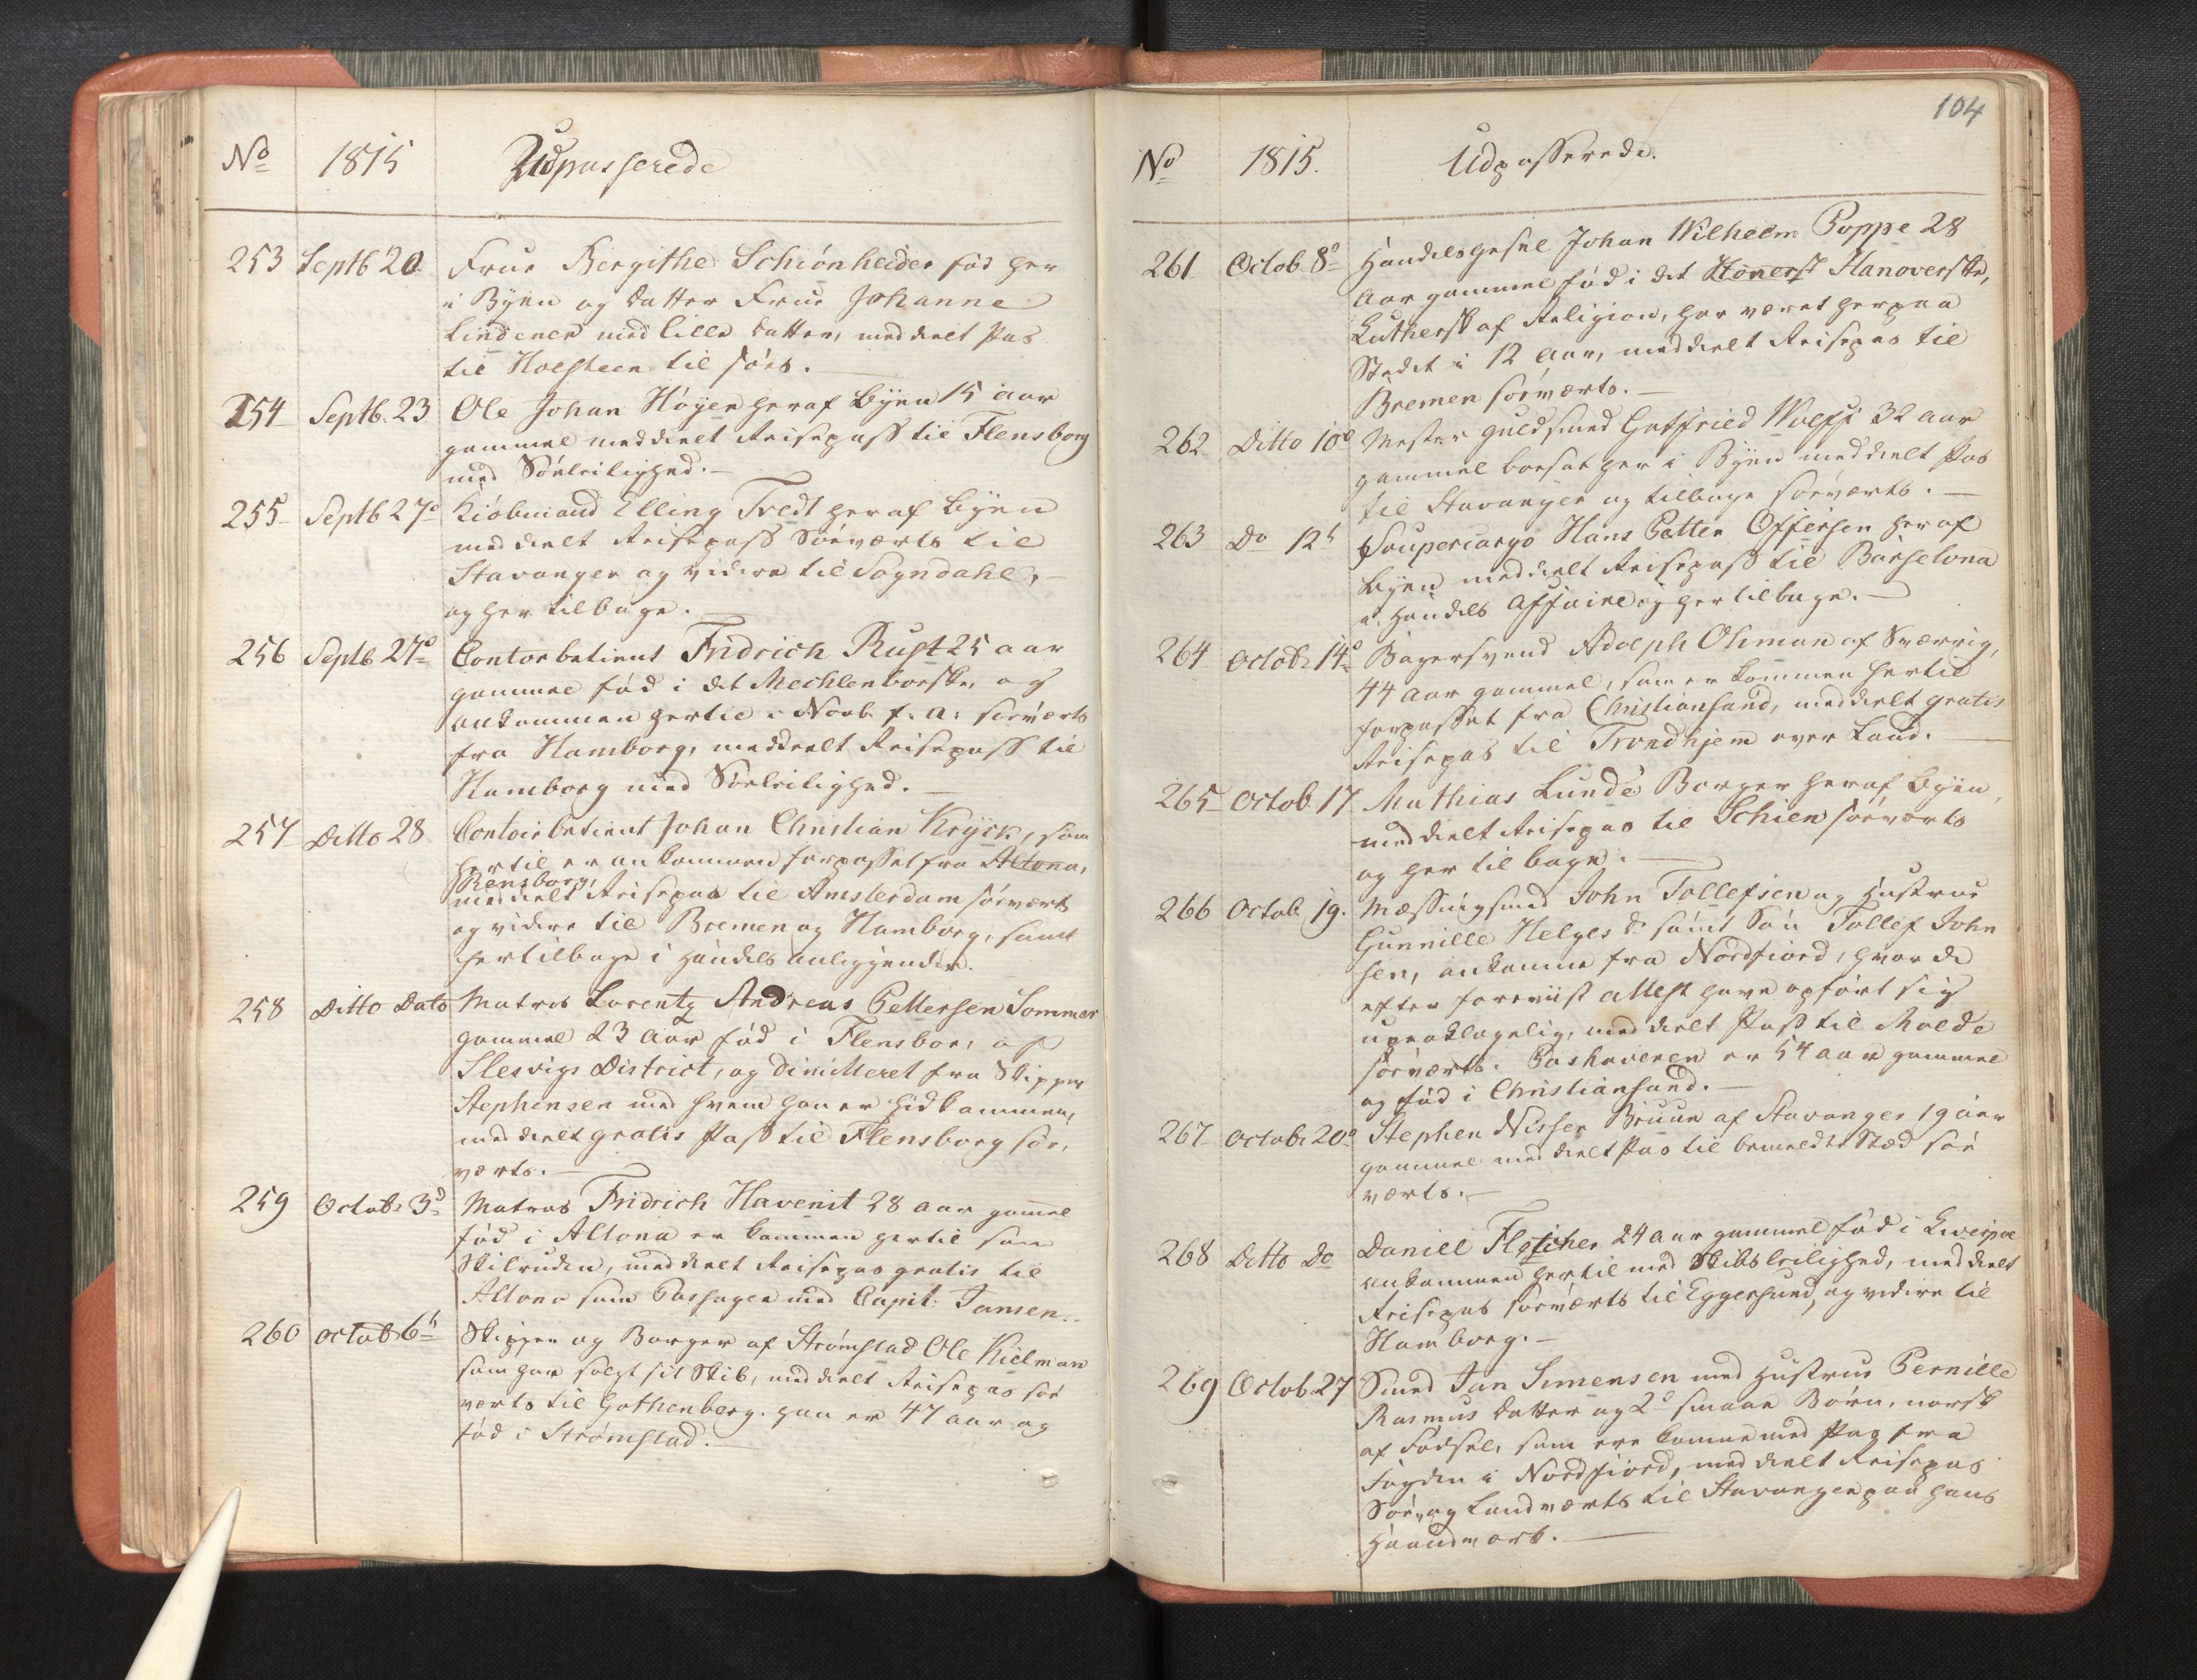 No 1815 Udpasserede
253 Septb 20 Frue Birgithe Schiönheider fød her
i Byen og Datter Frue Johanne
Lindener med lille Datter, meddeelt Pas
til Holsteen til søes.
254 Septb. 23 Ole Johan Höyer her af Byen 15 aar
gammel meddeelt Reisepass til Flensborg
med Søeleilighed.
255 Septb 27de Kiöbmand Elling Tvedt her af Byen
meddeelt Reisepass Søeværts til
Stavanger og videre til Sogndahl,
og her tilbage.
256 Septb 27de Contorbetient Fridrich Rust 25 aar
gammel fød i det Mechlenborske, og
ankommen hertil i Novb. f: A: søeværts
fra Hamborg, meddeelt Reisepass til
Hamborg med Søeleilighed.
257 Ditto 28 Contoirbetient Johan Christian Krÿck, som
hertil er ankommen forpasset fra Altona,
Rensborg,
meddeelt Reisepas til Amsterdam søeværts
og videre til Bremen og Hamborg, samt
her tilbage i Handels anliggender.
258 Ditto Dato Matros Lorentz Andreas Pettersen Sommer
gammel 23 aar fød i Flensbor, af
Slesvigs District, og dimitteret fra Skipper
Stephensen med hvem han er hidkommen,
meddeelt gratis Pass til Flensborg søe,
værts.
259 Octob. 3d Matros Fridrich Havenit 28 aar gam̄el
fød i Altona er kommen hertil som
Skibruden, meddeelt Reisepas gratis til
Altona som Passager med Capit: Jansen.
260 Octob 6t Skipper og Borger af Strømstad Ole Kielman
som har solgt sit Skib, meddeelt Reisepas søe
værts til Gothenberg. han er 47 aar og
fød i Strømstad.
104
No 1815. Udpasserede.
261 Octob. 8d Handelsgesel Johan Wilhelm Poppe 28
aar gammel fød i det Hanoverske,
Luthersk af Religion, har været her paa
Stedet i 12 aar, meddeelt Reisepas til
Bremen søeværts.
262 Ditto 10d Mester Guldsmed Gotfried Wulff 32 aar
gammel boesat her i Byen meddeelt Pas
til Stavanger og tilbage søeværts.
263 Do 12t Soupercargo Hans Petter Offersen her af
Byen meddeelt Reisepass til Barselona
i Handels Affaire og her tilbage.
264 Octob. 14d Bagersvend Adolph Ohman af Sverrig,
44 aar gammel, som er kommen hertil
forpasset fra Christiansand, meddeelt gratis
Reisepas til Trondhjem over Land.
265 Octob. 17 Mathias Lunde Borger her af Byen,
meddeelt Reisepas til Schien søeværts
og her tilbage.
266 Octob. 19. Messingsmed John Tollefsen og Hustrue
Gunnille Helges Dr samt Søn Tollef John
sen, ankomne fra Nordfiord, hvor de
efter foreviist Attest have opført sig
upaaklagelig, meddeelt Pass til Molde
søeværts. Pashaveren er 54 aar gammel
og fød i Christiansund.
267 Octob. 20d Stephen Nisser Bruun af Stavanger 19 aar
gammel meddeelt Pas til bemeldte Stæd søe
værts.
268 Ditto Do Daniel Fletcher 24 aar gammel fød i Liverpol
ankommen hertil med Skibsleilighed, meddeelt
Reisepas søeværts til Eggersund, og videre til
Hamborg.
269 Octob. 27 Smed Jan Simensen med Hustrue Pernille
Rasmus Datter og 2de smaae Børn, norsk
af Fødsel, som ere komne med Pas fra
Fogden i Nordfiord, meddeelt Reisepas
Søe, og Landværts til Stavanger paa hans
Haandverk.